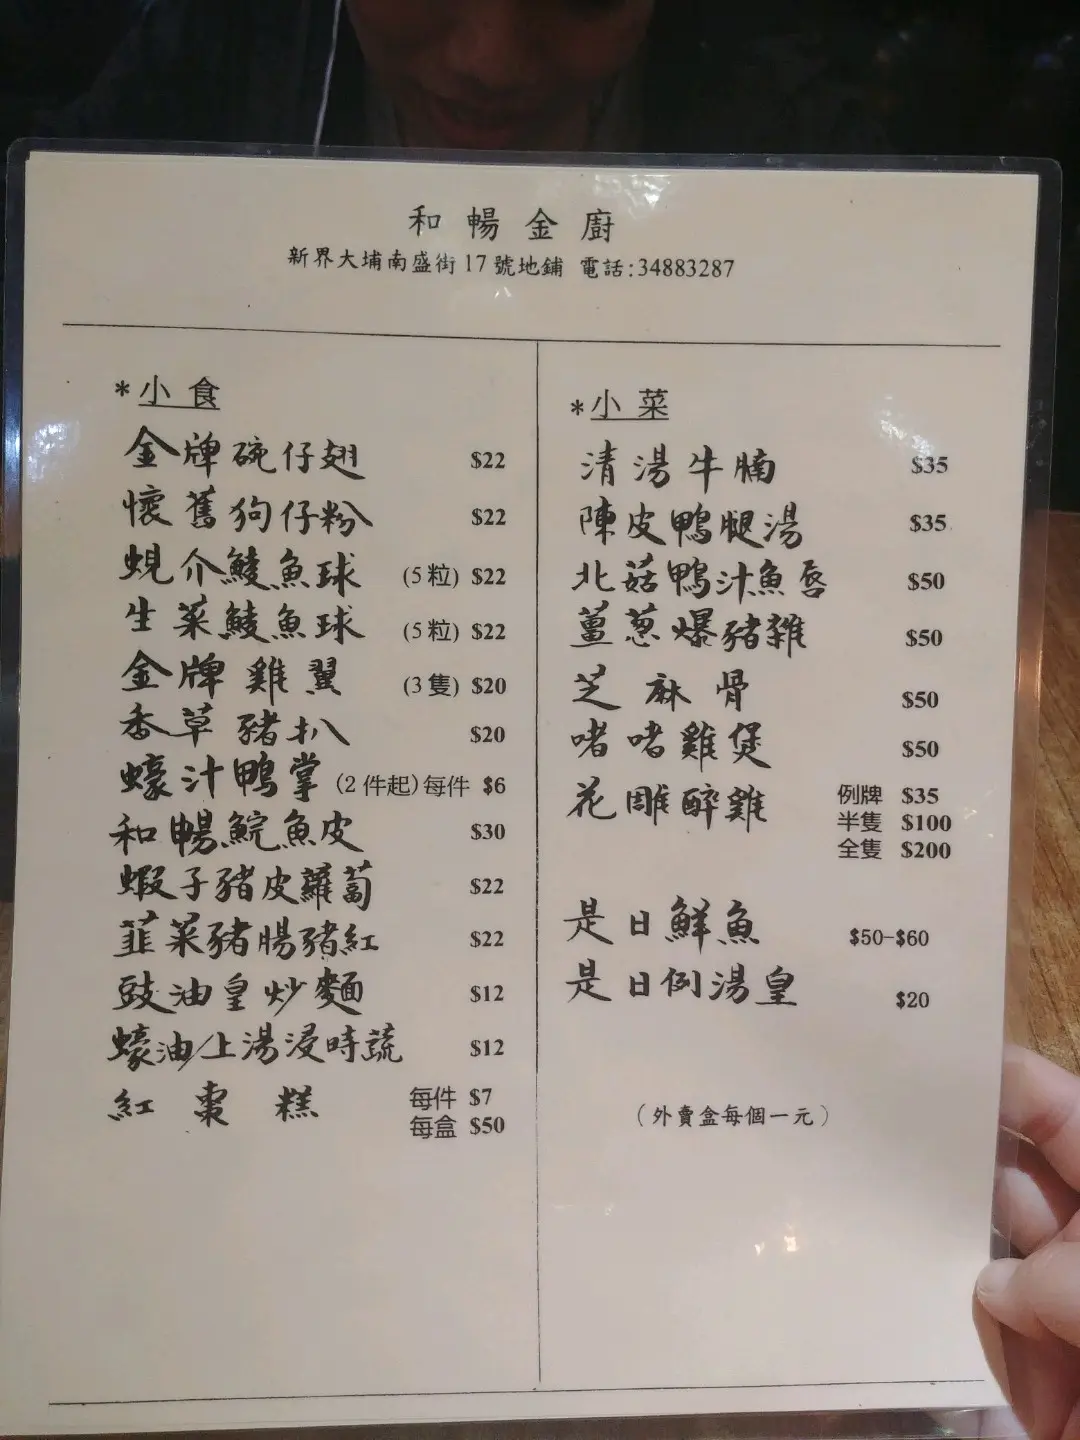 和暢金廚
新界大埔南盛街17號地鋪 電話:34883287
*小食
金牌碗仔翅 $22
懷舊狗仔粉 $22
蜆介鯪魚球 (5粒) $22
生菜鯪魚球 (5粒) $22
金牌雞翼 (3隻) $20
香草豬扒 $20
蠔汁鴨掌 (2件起)每件 $6
和暢鯇魚皮 $30
蝦子豬皮蘿蔔 $22
韮菜豬腸豬紅 $22
豉油皇炒麵 $12
蠔油/上湯浸時蔬 $12
紅棗糕 每件 $7
每盒 $50
*小菜
清湯牛腩 $35
陳皮鴨腿湯 $35
北菇鴨汁魚唇 $50
薑蔥爆豬雜 $50
芝麻骨 $50
啫啫雞煲 $50
花雕醉雞 例牌 $35
半隻 $100
全隻 $200
是日鮮魚 $50-$60
是日例湯皇 $20
(外賣盒每個一元)